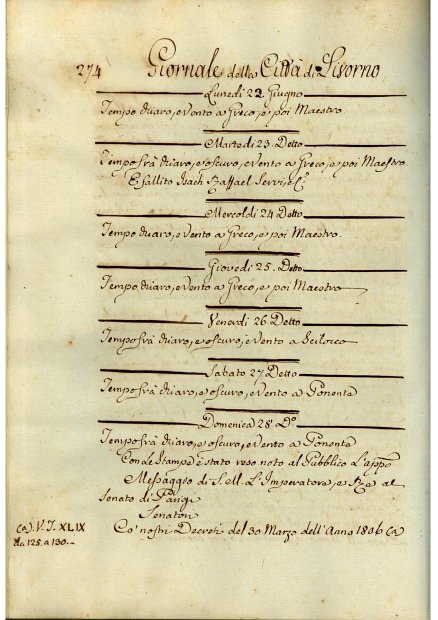 274 Giornale della Città di Livorno
Lunedi 22 Giugno
Tempo chiaro, e Vento a Greco, e poi Maestro
Martedi 23. Detto
Tempo frà chiaro, e oscuro, e Vento a Greco, e poi Maestro.
E fallito Isach Raffael Servi, e C.
Mercoldi 24 Detto
Tempo chiaro, e Vento a Greco, e poi Maestro.
Giovedi 25. Detto
Tempo chiaro, e Vento a Greco, e poi Maestro
Venerdi 26. Detto
Tempo frà chiaro, e oscuro, e Vento a Scilocco
Sabato 27 Detto
Tempo frà chiaro, e oscuro, e Vento a Ponente
Domenica 28. Dº
Tempo frà chiaro, e oscuro, e Vento a Ponente
Con Le Stampe è stato reso noto al Pubblico L'appo
Messaggio di S. M. L'Imperatore, e Re al
Senato di Parigi
Senatori
Co' nostri Decreti del 30 Marzo dell'Anno 1806 (a)
(a). V. T. XLIX
da 125. a 130.